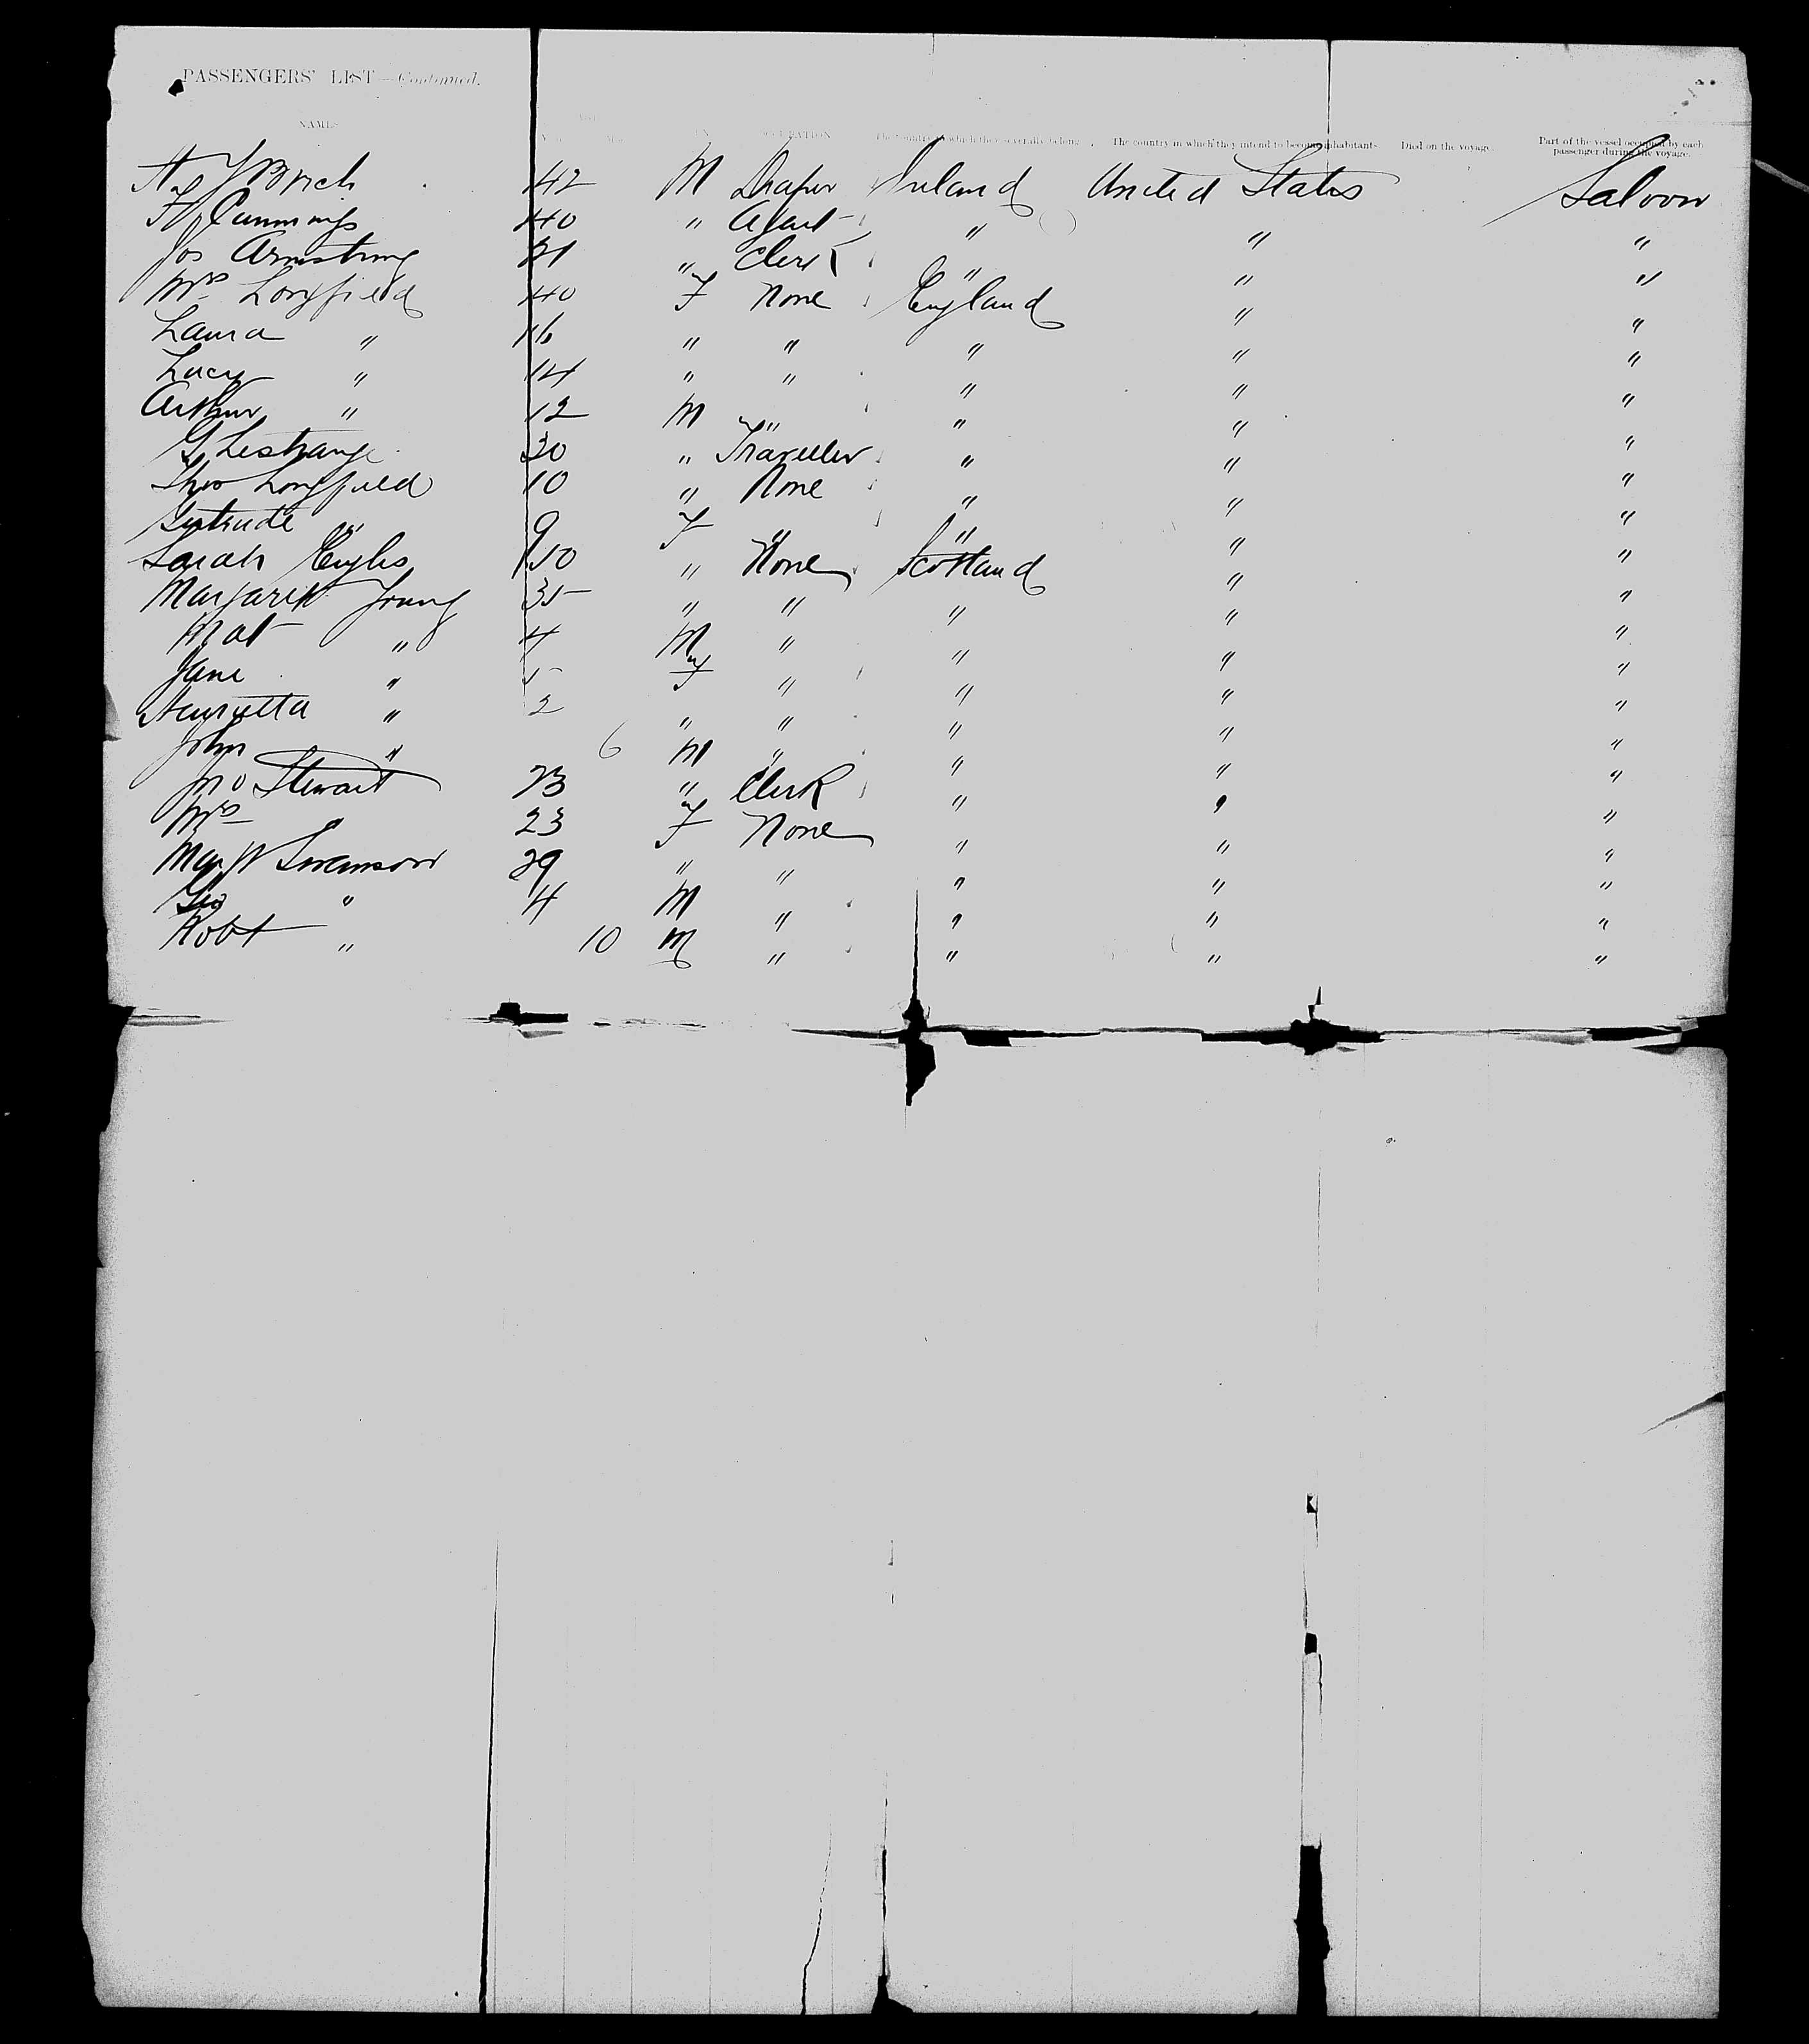 PASSENGERS' LIST—Continued.
NAMES OCCUPATION The country to which they severally belong The country in which they intend to become inhabitants Died on the voyage. Part of the vessel occupied by each passenger during the voyage.
42 M Draper Ireland United States Saloon
Cummings 40 " Agent " " "
Jos Armstrong 31 " Clerk " " "
Mrs Longfield 40 F None England " "
Laura " 16 " " " " "
Lucy " 14 " " " " "
Arthur " 12 M " " " "
G Lestrange 30 " Traveller " " "
Theo Longfield 10 " None " " "
Gertrude " 9 F " " " "
Sarah 50 " None Scotland " "
Margaret Young 35 " " " " "
Mat " 4 M " " " "
Jane " 5 F " " " "
Henrietta " 2 " " " " "
John " 6 M " " " "
Jno Stewart 23 " Clerk " " "
Mrs 23 F None " " "
Swanson 29 " " " " "
Geo " 4 M " " " "
Robt " 10 M " " " "